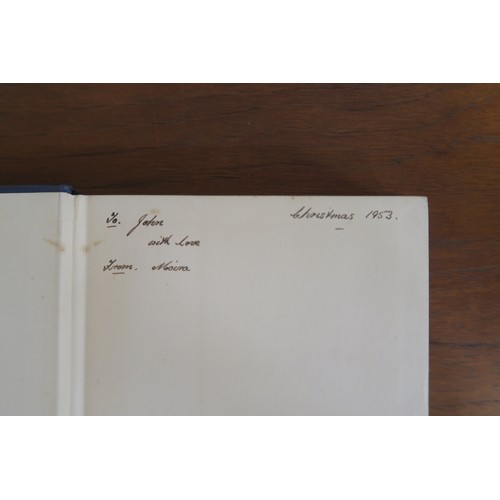 To. John
with love
From. Moira
Christmas 1953.